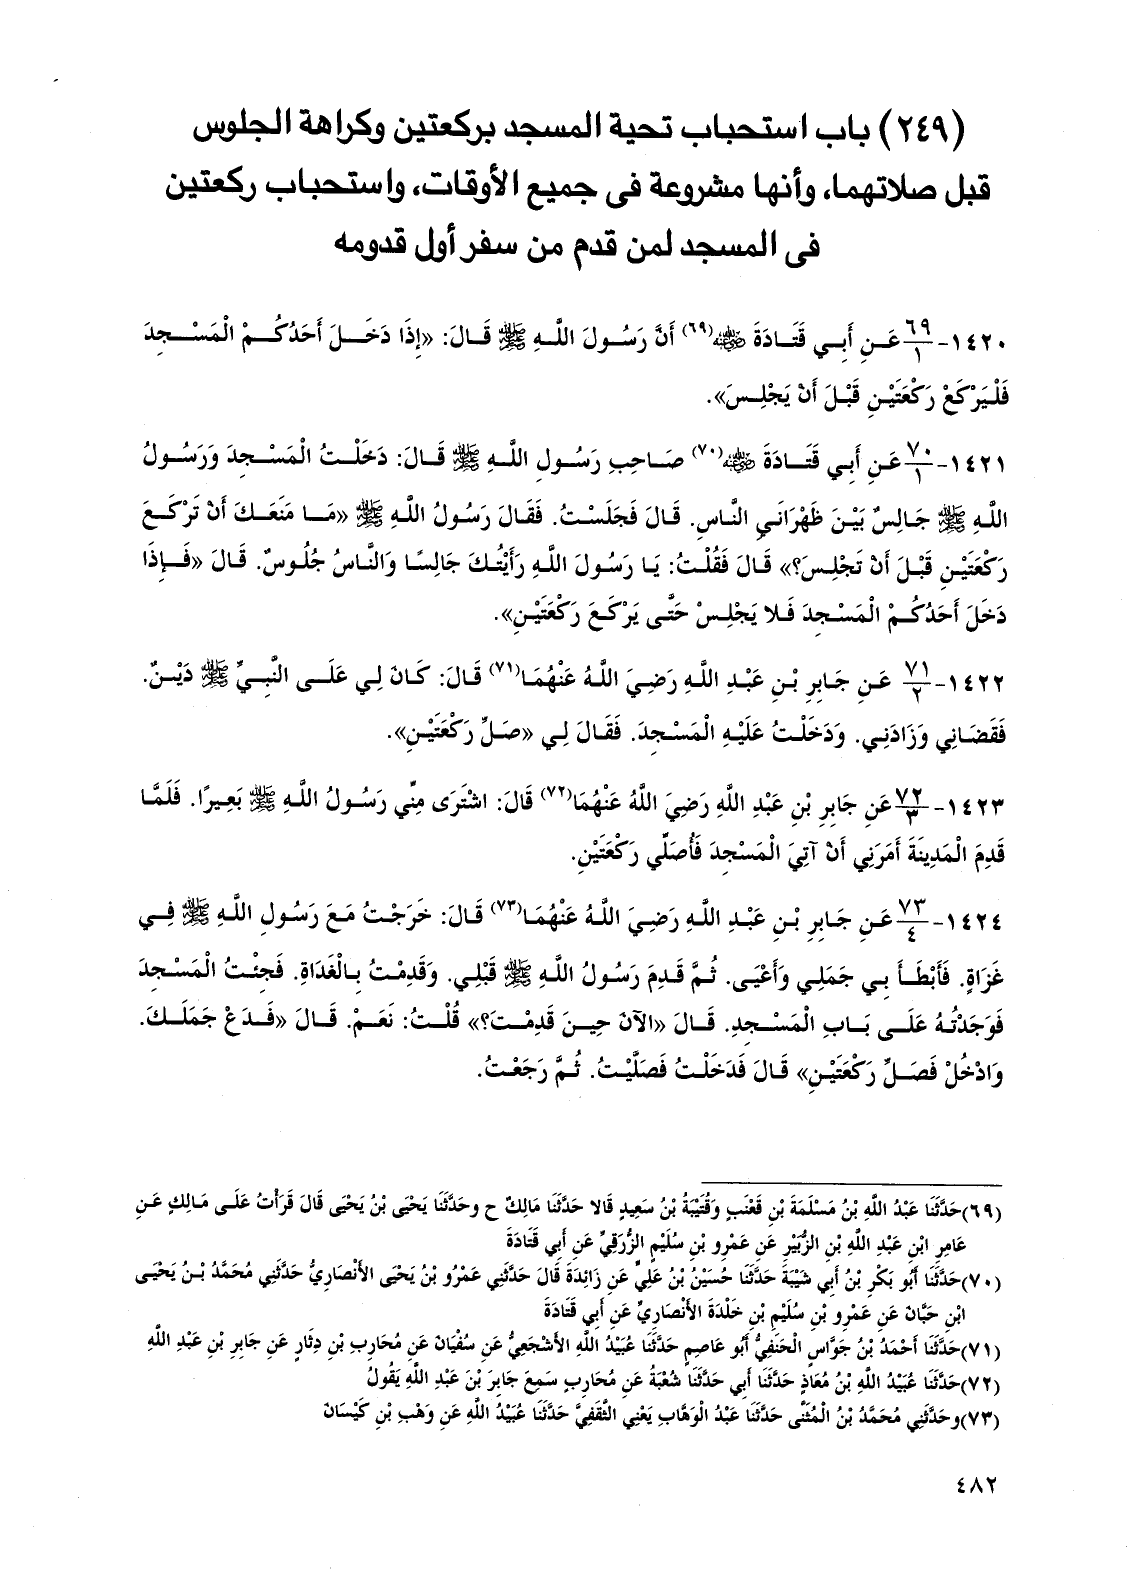 (٢٤٩) باب استحباب تحية المسجد بركعتين وكراهة الجلوس
قبل صلاتهما، وأنها مشروعة فى جميع الأوقات، واستحباب ركعتين
فى المسجد لمن قدم من سفر أول قدومه
١٤٢٠- ٦٩/١ عَنِ أَبِي قَتَادَةَ ﵁(٦٩) أَنَّ رَسُولَ اللَّهِ ﷺ قَالَ: «إِذَا دَخَلَ أَحَدُكُمْ الْمَسْجِدَ
فَلْيَرْكَعْ رَكْعَتَيْنِ قَبْلَ أَنْ يَجْلِسَ».
١٤٢١- ٧٠/١ عَنِ أَبِي قَتَادَةَ ﵁(٧٠) صَاحِبِ رَسُولِ اللَّهِ ﷺ قَالَ: دَخَلْتُ الْمَسْجِدَ وَرَسُولُ
اللَّهِ ﷺ جَالِسٌ بَيْنَ ظَهْرَانَيِ النَّاسِ. قَالَ فَجَلَسْتُ. فَقَالَ رَسُولُ اللَّهِ ﷺ «مَا مَنَعَكَ أَنْ تَرْكَعَ
رَكْعَتَيْنِ قَبْلَ أَنْ تَجْلِسَ؟» قَالَ فَقُلْتُ: يَا رَسُولَ اللَّهِ رَأَيْتُكَ جَالِسًا وَالنَّاسُ جُلُوسٌ. قَالَ «فَإِذَا
دَخَلَ أَحَدُكُمْ الْمَسْجِدَ فَلا يَجْلِسْ حَتَّى يَرْكَعَ رَكْعَتَيْنِ».
١٤٢٢- ٧١/٢ عَنِ جَابِرِ بْنِ عَبْدِ اللَّهِ رَضِيَ اللَّهُ عَنْهُمَا(٧١) قَالَ: كَانَ لِي عَلَى النَّبِيِّ ﷺ دَيْنٌ.
فَقَضَانِي وَزَادَنِي. وَدَخَلْتُ عَلَيْهِ الْمَسْجِدَ. فَقَالَ لِي «صَلِّ رَكْعَتَيْنِ».
١٤٢٣- ٧٢/٣ عَنِ جَابِرِ بْنِ عَبْدِ اللَّهِ رَضِيَ اللَّهُ عَنْهُمَا(٧٢) قَالَ: اشْتَرَى مِنِّي رَسُولُ اللَّهِ ﷺ بَعِيرًا. فَلَمَّا
قَدِمَ الْمَدِينَةَ أَمَرَنِي أَنْ آتِيَ الْمَسْجِدَ فَأُصَلِّي رَكْعَتَيْنِ.
١٤٢٤- ٧٣/٤ عَنِ جَابِرِ بْنِ عَبْدِ اللَّهِ رَضِيَ اللَّهُ عَنْهُمَا(٧٣) قَالَ: خَرَجْتُ مَعَ رَسُولِ اللَّهِ ﷺ فِي
غَزَاةٍ. فَأَبْطَأَ بِي جَمَلِي وَأَعْيَى. ثُمَّ قَدِمَ رَسُولُ اللَّهِ ﷺ قَبْلِي. وَقَدِمْتُ بِالْغَدَاةِ. فَجِئْتُ الْمَسْجِدَ
فَوَجَدْتُهُ عَلَى بَابِ الْمَسْجِدِ. قَالَ «الآنَ حِينَ قَدِمْتَ؟» قُلْتُ: نَعَمْ. قَالَ «فَدَعْ جَمَلَكَ.
وَادْخُلْ فَصَلِّ رَكْعَتَيْنِ» قَالَ فَدَخَلْتُ فَصَلَّيْتُ. ثُمَّ رَجَعْتُ.
(٦٩)حَدَّثَنَا عَبْدُ اللَّهِ بْنُ مَسْلَمَةَ بْنِ قَعْنَبٍ وَقُتَيْبَةُ بْنُ سَعِيدٍ قَالا حَدَّثَنَا مَالِكٌ ح وحَدَّثَنَا يَحْيَى بْنُ يَحْيَى قَالَ قَرَأْتُ عَلَى مَالِكٍ عَنِ
عَامِرِ ابْنِ عَبْدِ اللَّهِ بْنِ الزُّبَيْرِ عَنِ عَمْرِو بْنِ سُلَيْمٍ الزُّرَقِيِّ عَنِ أَبِي قَتَادَةَ
(٧٠)حَدَّثَنَا أَبُو بَكْرِ بْنُ أَبِي شَيْبَةَ حَدَّثَنَا حُسَيْنُ بْنُ عَلِيٍّ عَنِ زَائِدَةَ قَالَ حَدَّثَنِي عَمْرُو بْنُ يَحْيَى الأَنْصَارِيُّ حَدَّثَنِي مُحَمَّدُ بْنُ يَحْيَى
ابْنِ حَبَّانَ عَنِ عَمْرِو بْنِ سُلَيْمِ بْنِ خَلْدَةَ الأَنْصَارِيِّ عَنِ أَبِي قَتَادَةَ
(٧١)حَدَّثَنَا أَحْمَدُ بْنُ جَوَّاسٍ الْحَنَفِيُّ أَبُو عَاصِمٍ حَدَّثَنَا عُبَيْدُ اللَّهِ الأَشْجَعِيُّ عَنِ سُفْيَانَ عَنِ مُحَارِبِ بْنِ دِثَارٍ عَنِ جَابِرِ بْنِ عَبْدِ اللَّهِ
(٧٢)حَدَّثَنَا عُبَيْدُ اللَّهِ بْنُ مُعَاذٍ حَدَّثَنَا أَبِي حَدَّثَنَا شُعْبَةُ عَنِ مُحَارِبٍ سَمِعَ جَابِرَ بْنَ عَبْدِ اللَّهِ يَقُولُ
(٧٣)وحَدَّثَنِي مُحَمَّدُ بْنُ الْمُثَنَّى حَدَّثَنَا عَبْدُ الْوَهَّابِ يَعْنِي الثَّقَفِيَّ حَدَّثَنَا عُبَيْدُ اللَّهِ عَنِ وَهْبِ بْنِ كَيْسَانَ
٤٨٢